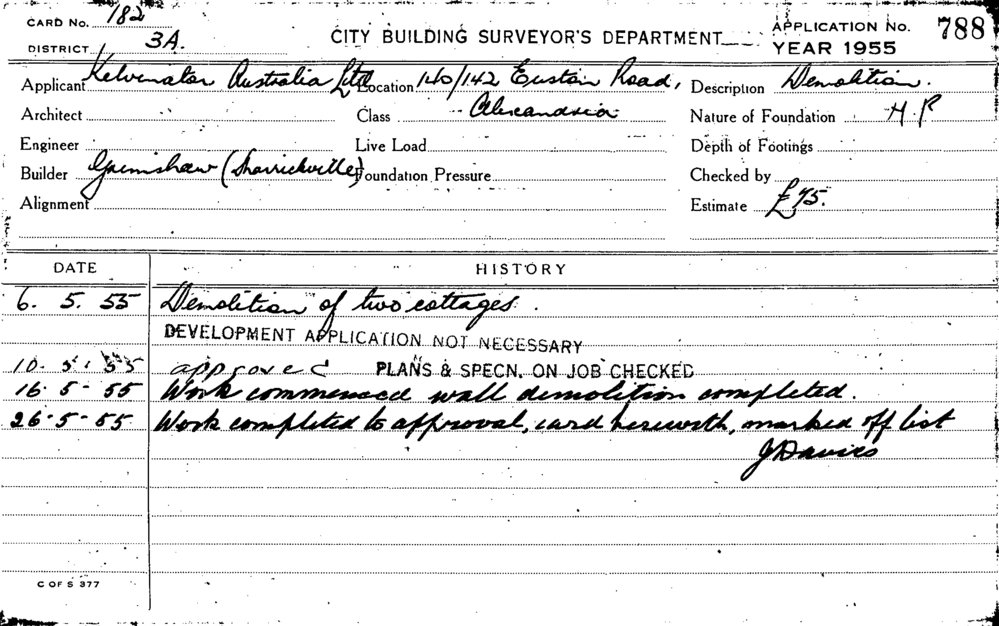 CARD No. 182
CITY BUILDING SURVEYOR'S DEPARTMENT
APPLICATION No. 788
DISTRICT 3A.
YEAR 1955
Applicant Kelvinator Australia Ltd Location 140/142 Euston Road, Description Demolition.
Architect Class Alexandria Nature of Foundation H.P
Engineer Live Load Depth of Footings
Builder Grimshaw (Marrickville) Foundation Pressure Checked by
Alignment Estimate £75.
DATE HISTORY
6. 5. 55 Demolition of two cottages.
DEVELOPMENT APPLICATION NOT NECESSARY
10. 5. 55 approved PLANS & SPECN. ON JOB CHECKED
16. 5 - 55 Work commenced wall demolition completed.
26 - 5 - 55 Work completed to approval, card herewith, marked off list
J Davies
C OF S 377